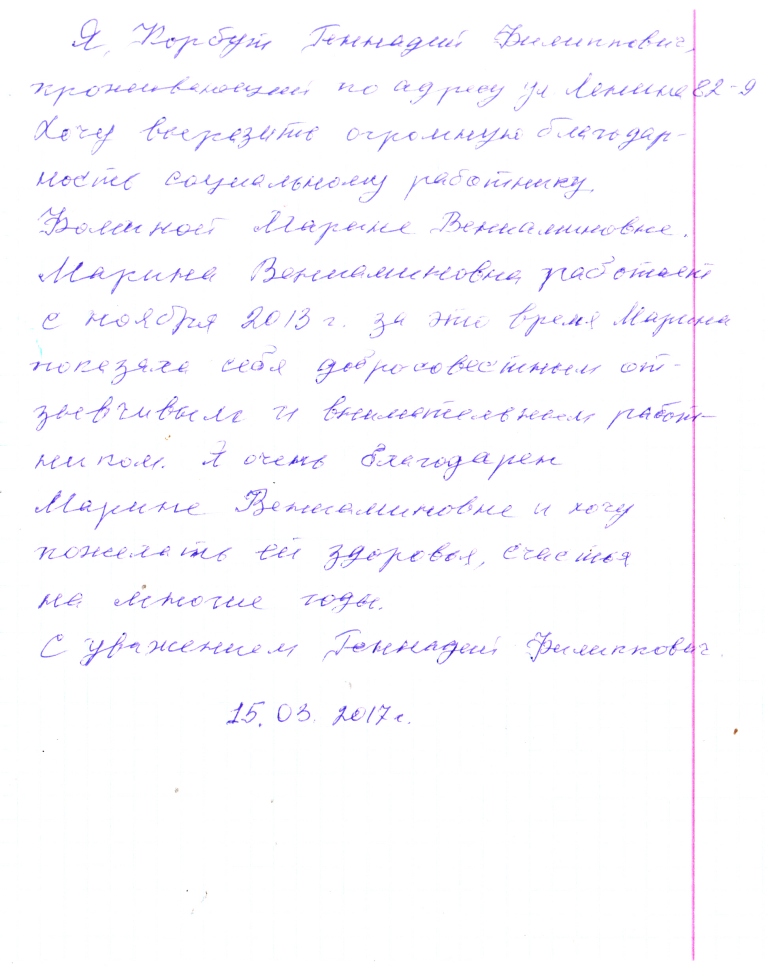 Я, Корбут Геннадий Филиппович,
проживающий по адресу ул Ленина 82-9
Хочу выразить огромную благодар-
ность социальному работнику.
Марине Вениаминовне.
Марина Вениаминовна работает
с ноября 2013 г. за это время Марина
показала себя добросовестным от-
зывчивым и внимательным работ-
ником. Я очень благодарен
Марине Вениаминовне и хочу
пожелать ей здоровья, счастья
на многие годы.
С уважением Геннадий Филиппович.
15.03.2017г.